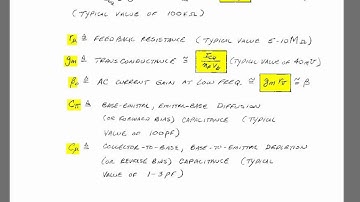 (TYPICAL VALUE OF 100KΩ)
rμ ≜ FEEDBACK RESISTANCE (TYPICAL VALUE 5-10MΩ)
gm ≜ TRANSCONDUCTANCE ≅ (TYPICAL VALUE OF 40m℧)
βo ≜ AC CURRENT GAIN AT LOW FREQ. ≅ gm rπ ≅ β
Cπ ≜ BASE-EMITTER, EMITTER-BASE DIFFUSION
(OR FORWARD BIAS) CAPACITANCE (TYPICAL
VALUE OF 100pF)
Cμ ≜ COLLECTOR-TO-BASE, BASE-TO-EMITTER DEPLETION
(OR REVERSE BIAS) CAPACITANCE (TYPICAL
VALUE OF 1-3pF)